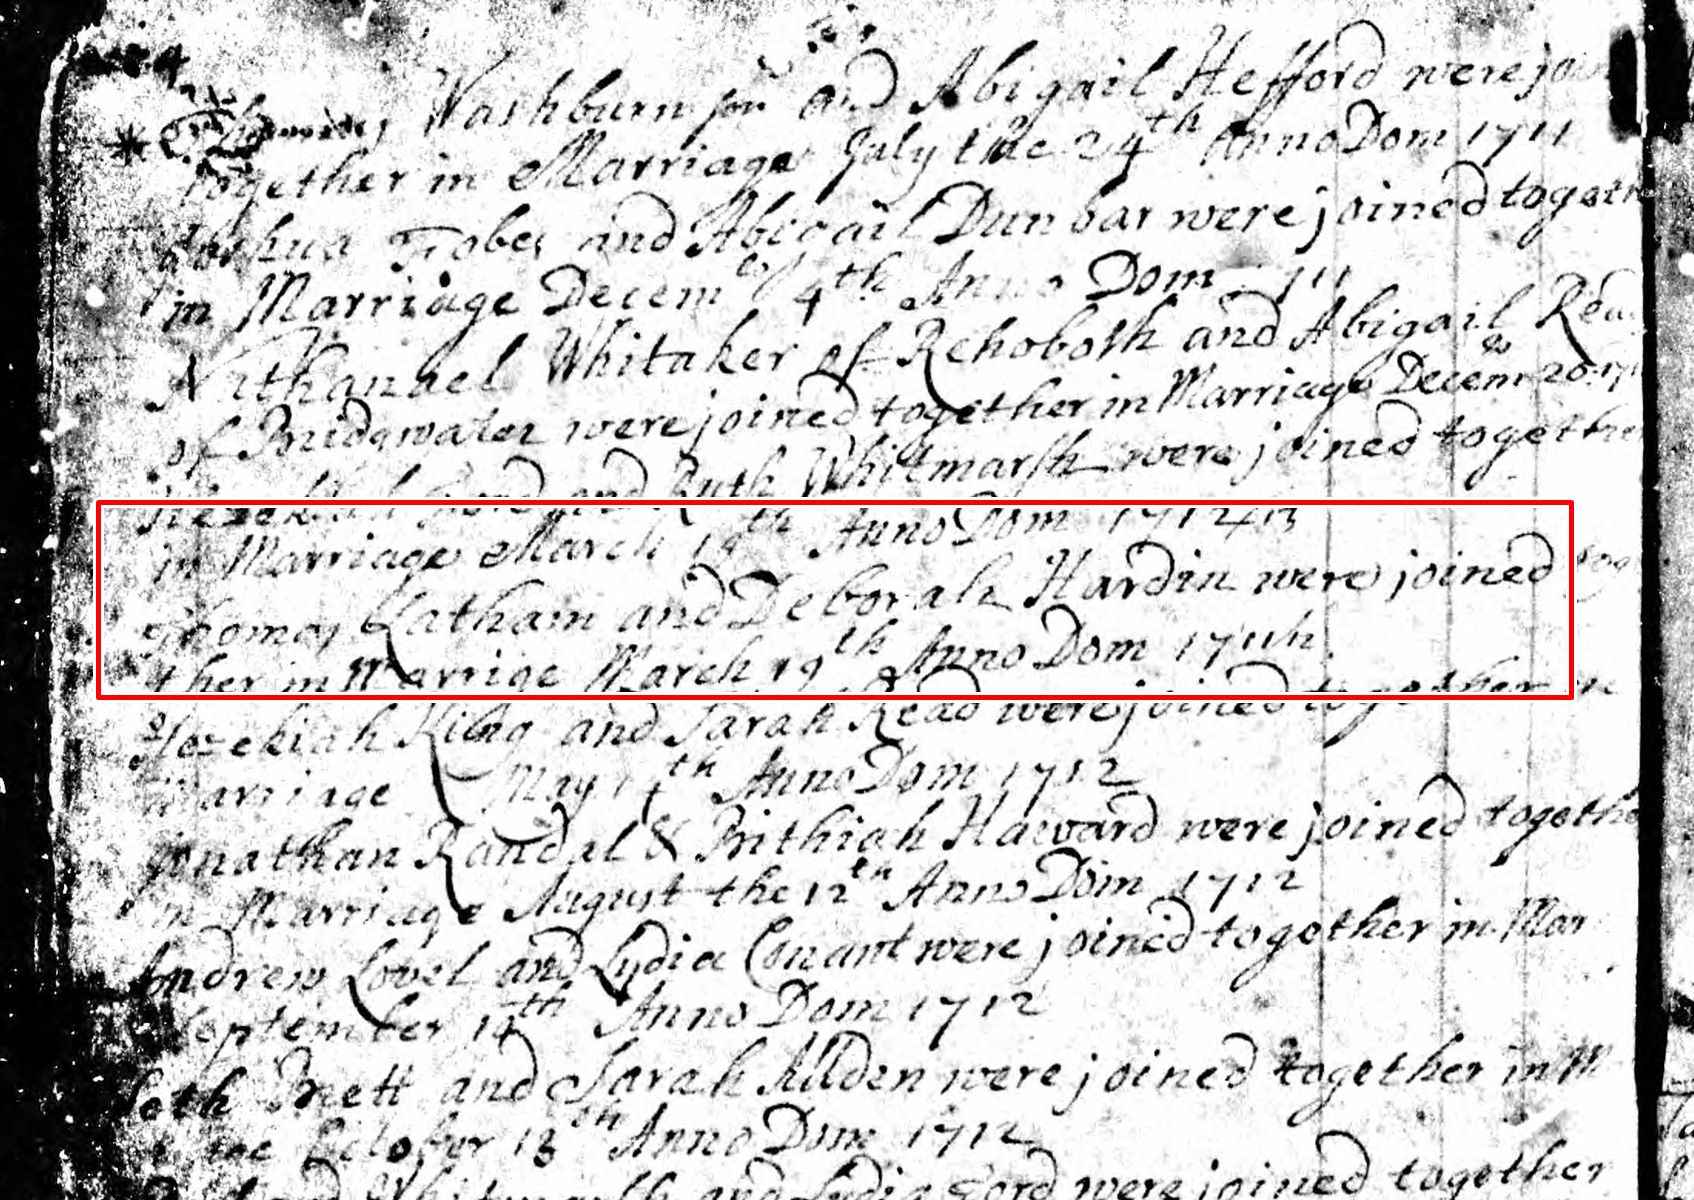 Thomas Washburn junr and Abigail Hefford were joi
together in Marriage July the 24th Anno Dom 1711
Joshua Fobes and Abigail Dunbar were joined togeth
in Marriage Decembr 4th Anno Dom 1711
Nathanael Whitaker of Rehoboth and Abigail Rea
of Bridgwater were joined together in Marriage Decemr 20 171
Hezekiah Ford and Ruth Whitmarsh were joined together
in Marriage March 19th Anno Dom 1712/13
Thomas Latham and Deborah Hardin were joined tog
ther in Marrige March 19th Anno Dom
Hezekiah King and Sarah Read were joined together in
Marriage May 14th Anno Dom 1712
Jonathan Randal & Bithiah Haward were joined togethe
in Marriage August the 12th Anno Dom 1712
Andrew Lovel and Lydia Conant were joined together in Mar
September 14th Anno Dom 1712
Seth Brett and Sarah Allden were joined together in M
October 13th Anno Dom 1712
and Lydia Ford were joined together